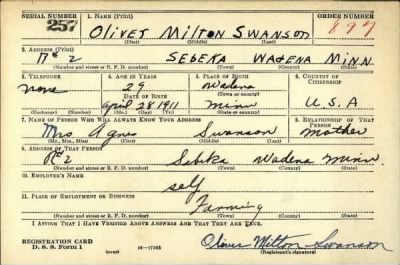 SERIAL NUMBER 1. NAME (Print) ORDER NUMBER
257 OLIVET MILTON SWANSON 897
(First) (Middle) (Last)
2. ADDRESS (Print)
R# 2 SEBEKA WADENA MINN.
(Number and street or R. F. D. number) (Town) (County) (State)
3. TELEPHONE 4. AGE IN YEARS 5. PLACE OF BIRTH 6. COUNTRY OF CITIZENSHIP
none 29 Wadena
DATE OF BIRTH (Town or county)
April 28 1911 Minn U.S.A
(Exchange) (Number) (Mo.) (Day) (Yr.) (State or country)
7. NAME OF PERSON WHO WILL ALWAYS KNOW YOUR ADDRESS 8. RELATIONSHIP OF THAT PERSON
Mrs Agnes Swanson Mother
(Mr., Mrs., Miss) (First) (Middle) (Last)
9. ADDRESS OF THAT PERSON
R# 2 Sebeka Wadena Minn.
(Number and street or R. F. D. number) (Town) (County) (State)
10. EMPLOYER'S NAME
self
11. PLACE OF EMPLOYMENT OR BUSINESS
Farming
(Number and street or R. F. D. number) (Town) (County) (State)
I AFFIRM THAT I HAVE VERIFIED ABOVE ANSWERS AND THAT THEY ARE TRUE.
REGISTRATION CARD
D. S. S. Form 1 (over) 16—17105 Olivet Milton Swanson
(Registrant's signature)